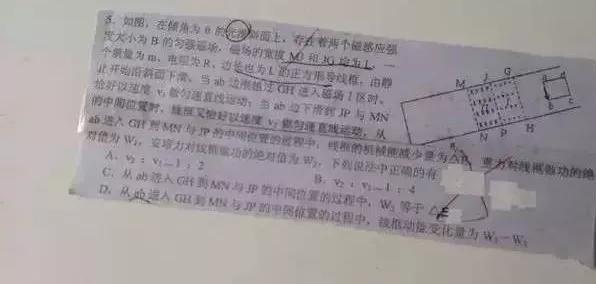 8. 如图,在倾角为θ的光滑斜面上,存在着两个磁感应强
度大小为B的匀强磁场,磁场的宽度MJ和JG均为L,一
个质量为m、电阻为R、边长也为L的正方形导线框,由静
止开始沿斜面下滑,当ab边刚越过GH进入磁场I区时,
恰好以速度v₁做匀速直线运动;当ab边下滑到JP与MN
的中间位置时,线框又恰好以速度v₂做匀速直线运动,从
ab进入GH到MN与JP的中间位置的过程中,线框的机械能减少量为△E,重力对线框做功的绝
对值为W₁,安培力对线框做功的绝对值为W₂,下列说法中正确的有
A. v₂:v₁=1:2
B. v₂:v₁=1:4
C. 从ab进入GH到MN与JP的中间位置的过程中,W₂等于△E
D. 从ab进入GH到MN与JP的中间位置的过程中,线框动能变化量为W₁-W₂
M J G
N P H
b c